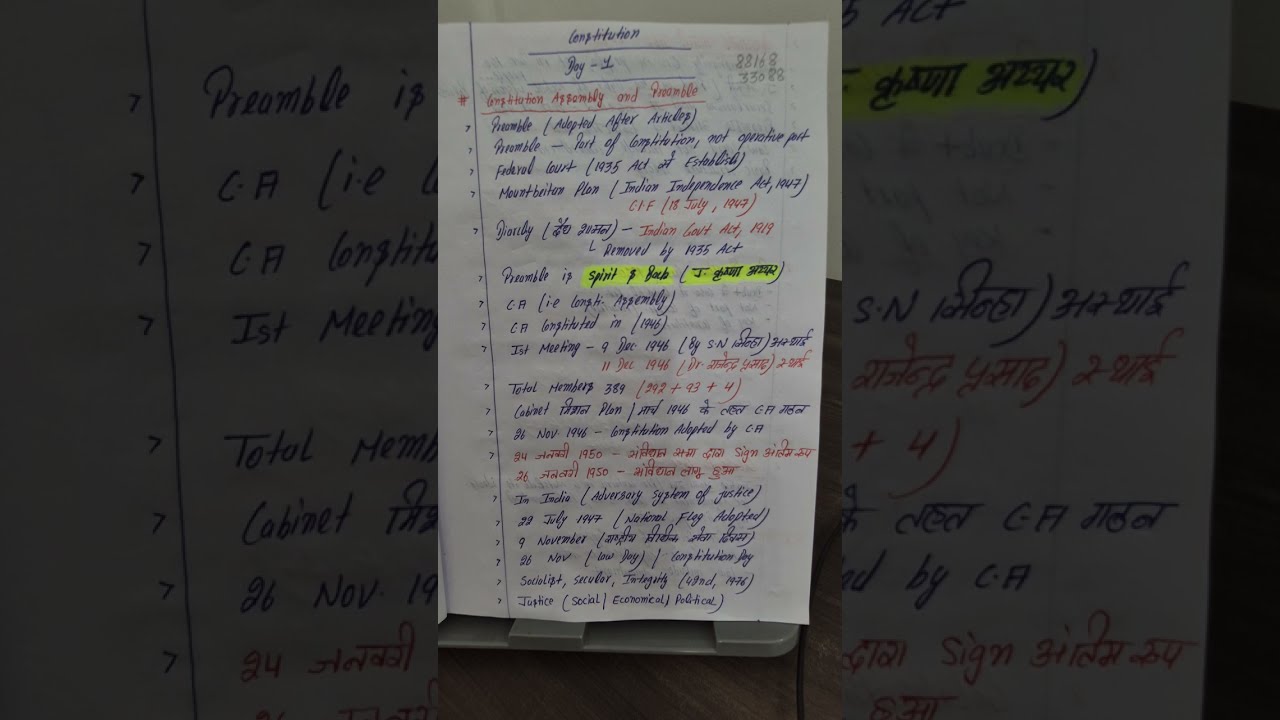 Constitution
Day - 1
88168
33088
# Constitution Assembly and Preamble
> Preamble (Adopted After Articles)
> Preamble - Part of Constitution, not operative part
> Federal Court (1935 Act से Establish)
> Mountbeitan Plan (Indian Independence Act, 1947)
C.I.F (18 July, 1947)
> Diarchy (द्वैध शासन) - Indian Govt Act, 1919
Removed by 1935 Act
> Preamble is Spirit & (J. कृष्णा अय्यर)
> C.A (i.e Consti. Assembly)
> CA Constituted in (1946)
> Ist Meeting - 9 Dec. 1946 (By S.N सिन्हा) अस्थाई
11 Dec 1946 (Dr. राजेन्द्र प्रसाद) स्थाई
> Total Members 389 (292 + 93 + 4)
> Cabinet मिशन Plan / मार्च 1946 के तहत C.A गठन
> 26 Nov. 1946 - Constitution Adopted by C.A
> 24 जनवरी 1950 - संविधान सभा द्वारा Sign अंतिम रूप
26 जनवरी 1950 - संविधान लागू हुआ
> In India (Adversary System of justice)
> 22 July 1947 (National Flag Adopted)
> 9 November (राष्ट्रीय सेवा दिवस)
> 26 Nov (Law Day) / Constitution Day
> Socialist, Secular, Integrity (42nd, 1976)
> Justice (Social / Economical / Political)